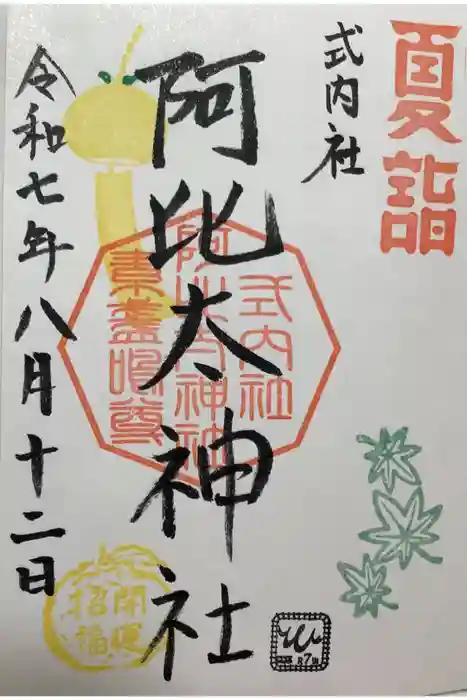 夏詣
式内社
阿比太神社
式内社
阿比太神社
素盞嗚尊
令和七年八月十二日
開運
招福